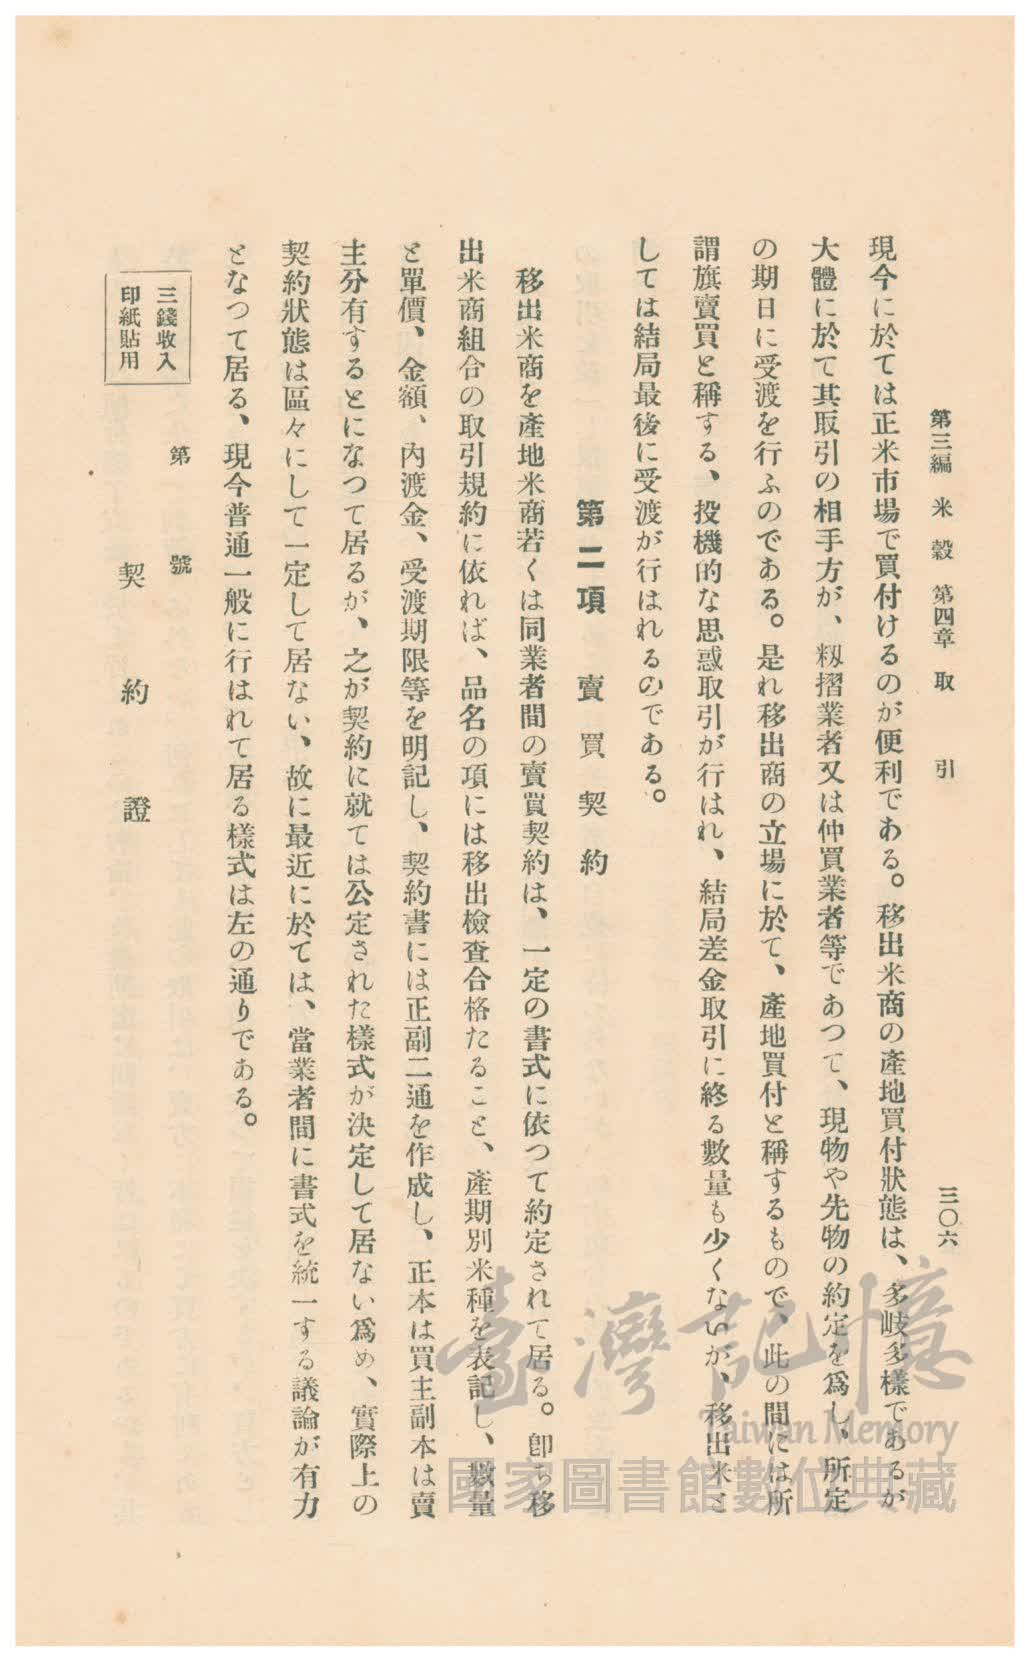 第三編 米 穀 第四章 取 引
三〇六
現今に於ては正米市場で買付けるのが便利である。移出米商の產地買付狀態は、多岐多樣であるが
大體に於て其取引の相手方が、籾摺業者又は仲買業者等であつて、現物や先物の約定を爲し、所定
の期日に受渡を行ふのである。是れ移出商の立場に於て、產地買付と稱するもので、此の間には所
謂旗賣買と稱する、投機的な思惑取引が行はれ、結局差金取引に終る數量も少くないが、移出米と
しては結局最後に受渡が行はれるのである。
第二項 賣買契約
移出米商を產地米商若くは同業者間の賣買契約は、一定の書式に依つて約定されて居る。卽ち移
出米商組合の取引規約に依れば、品名の項には移出檢査合格たること、產期別米種を表記し、數量
と單價、金額、內渡金、受渡期限等を明記し、契約書には正副二通を作成し、正本は買主副本は賣
主分有するとになつて居るが、之が契約に就ては公定された樣式が決定して居ない爲め、實際上の
契約狀態は區々にして一定して居ない、故に最近に於ては、當業者間に書式を統一する議論が有力
となつて居る、現今普通一般に行はれて居る樣式は左の通りである。
第 號
三錢收入
印紙貼用
契約證
臺灣記憶
Taiwan Memory
國家圖書館數位典藏